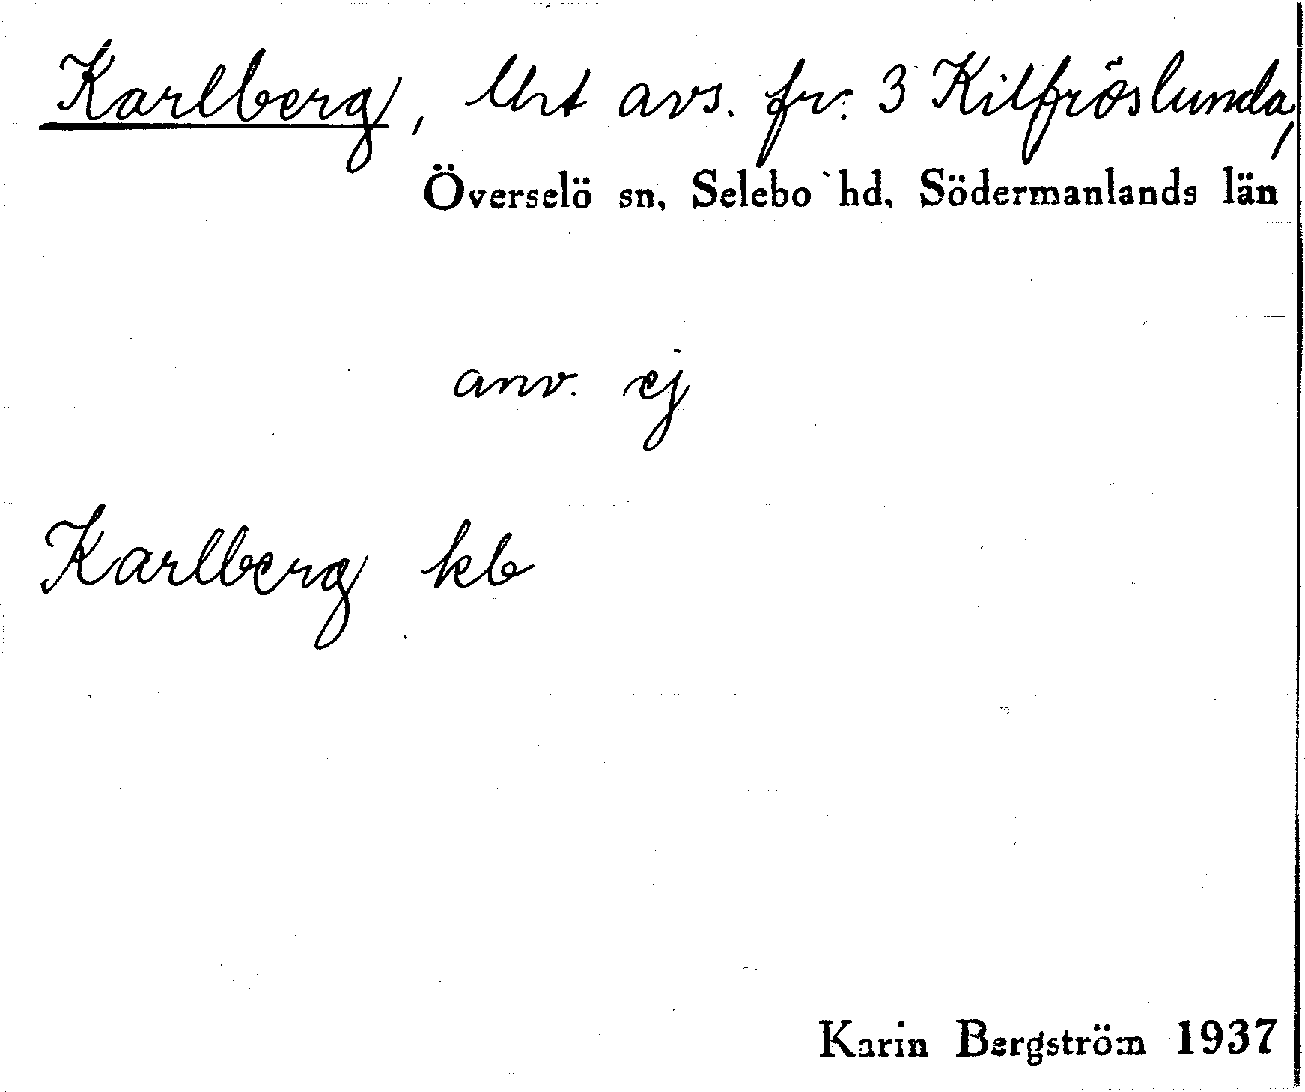 Karlberg, lht avs. fr. 3 Kilfröslunda,
Överselö sn, Selebo hd, Södermanlands län
anv. ej
Karlberg kb
Karin Bergström 1937